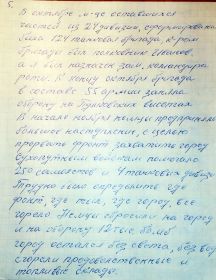 5.
В октябре м-це оставшихся
частей из 24 дивизии, сформирована
была 124 танковая бригада, к-ром
бригады был полковник Родионов,
а я был назначен зам. командира
роты. В конце октября бригада
в составе 55 армии заняла
оборону на Пулковских высотах
В начале ноября немцы предприняли
большое наступление, с целью
прорвать фронт захватить город
сухопутным войскам помогало
250 самолетов и 4 танковых дивизии
Трудно было определить где
фронт, где тыл, где город, все
горело Немцы сбросили на город
и на оборону 12 тыс. бомб
город остался без света, без воды
сгорели продовольственные и
топливные склады.